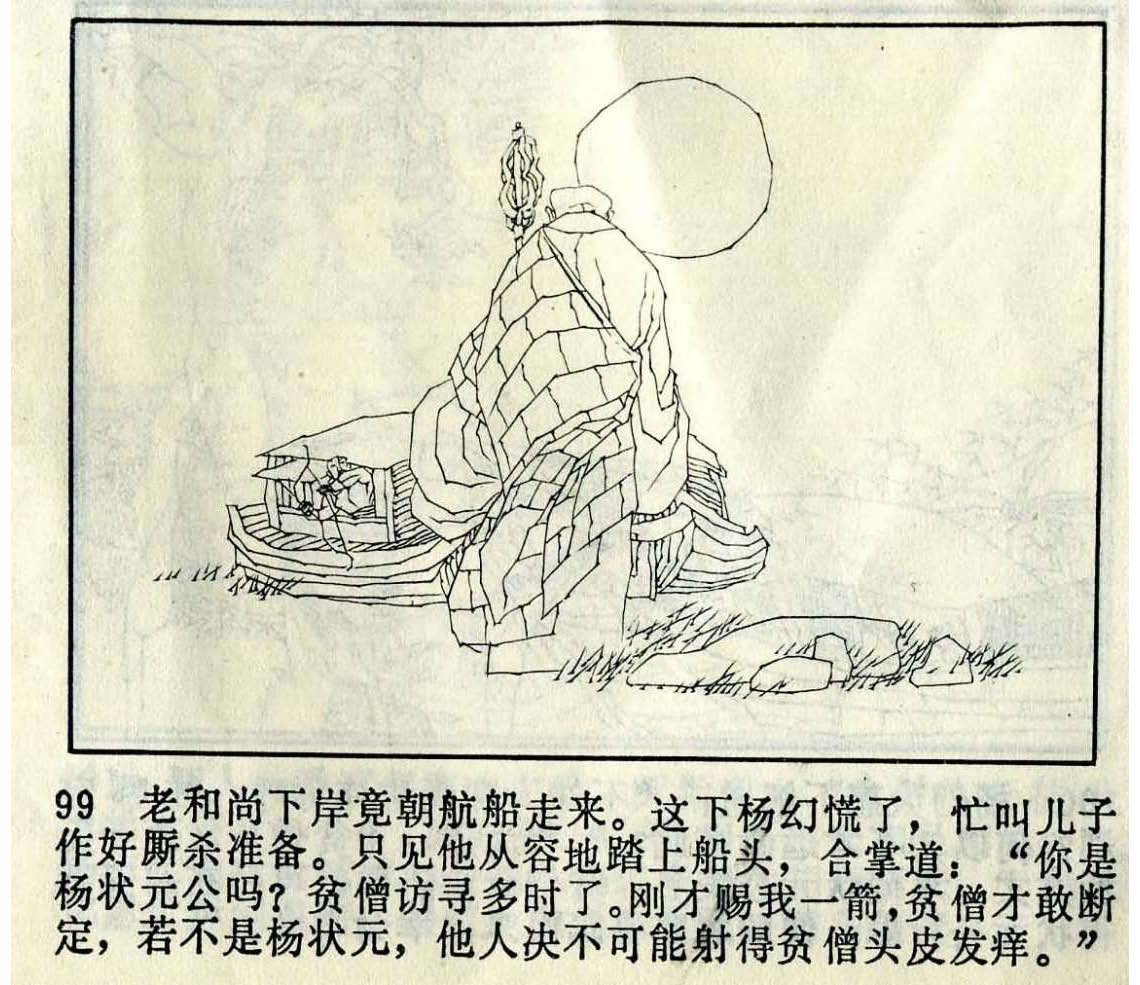 99 老和尚下岸竟朝航船走来。这下杨幻慌了，忙叫儿子
作好厮杀准备。只见他从容地踏上船头，合掌道：“你是
杨状元公吗？贫僧访寻多时了。刚才赐我一箭，贫僧才敢断
定，若不是杨状元，他人决不可能射得贫僧头皮发痒。”